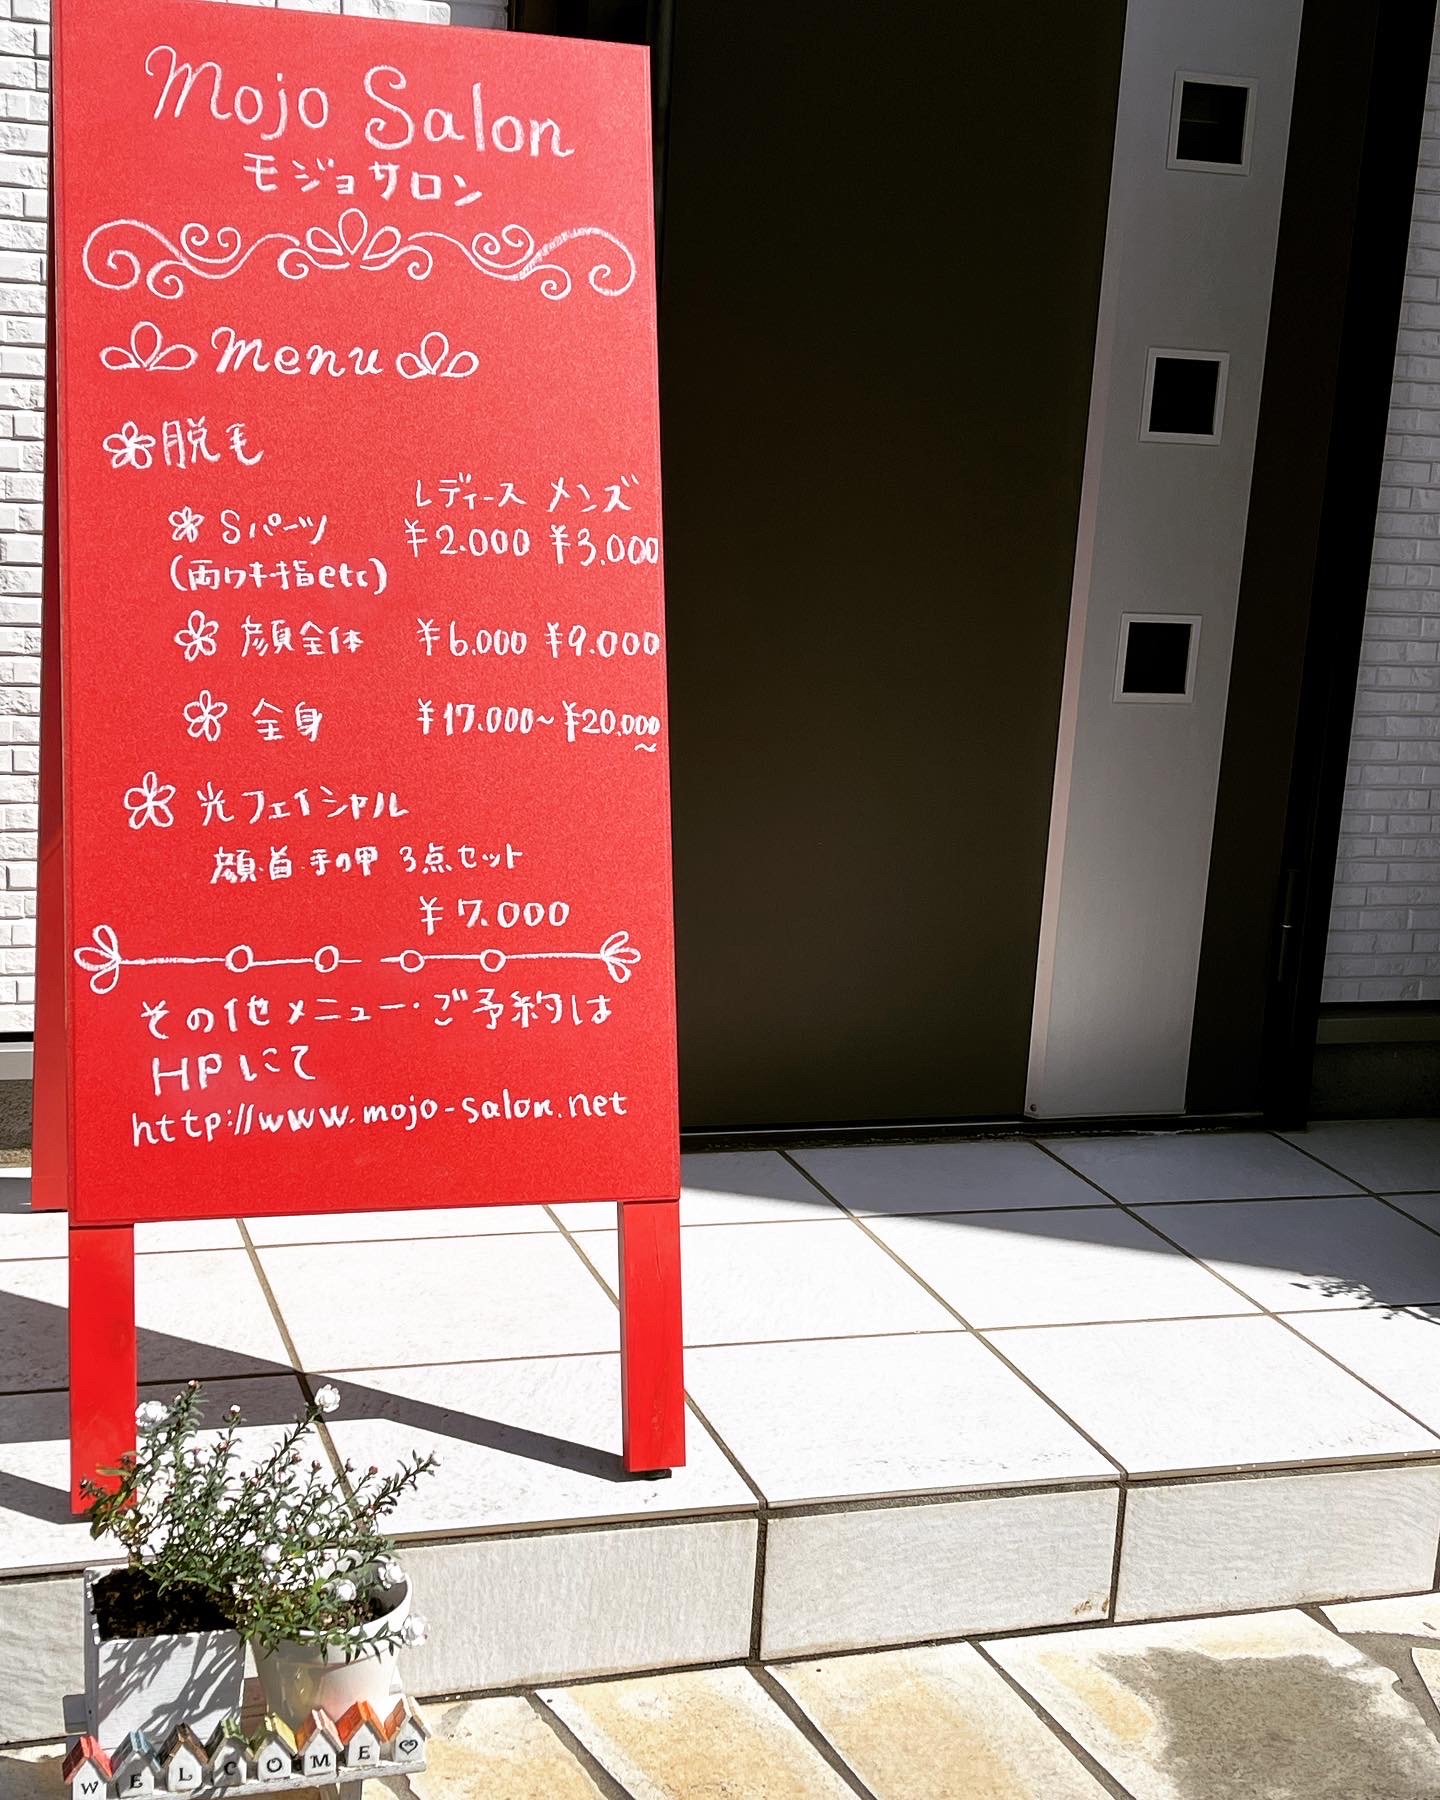 Mojo Salon
モジョサロン
menu
脱毛
レディース メンズ
Sパーツ ¥2.000 ¥3.000
(両ワキ指etc)
顔全体 ¥6.000 ¥9.000
全身 ¥17.000~ ¥20.000~
光フェイシャル
顔・首・手の甲 3点セット
¥7.000
その他メニュー・ご予約は
HPにて
http://www.mojo-salon.net
WELCOME